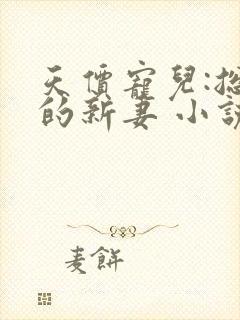 天價寵兒:
的新妻 小
麦餅